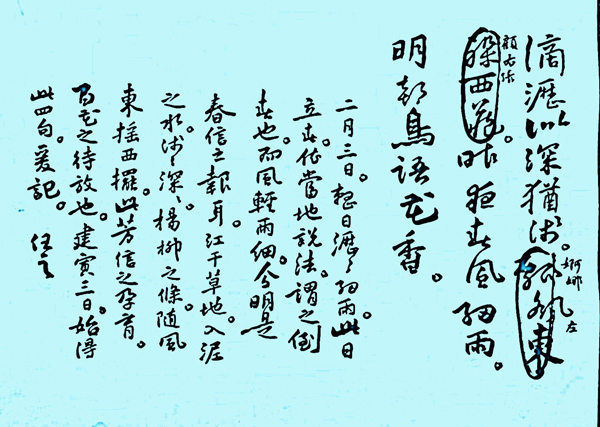 滴瀝似深猶淺。東
婀娜
左
西昨夜春風細雨。
顛右
明朝鳥語花香。
二月三日。整日瀝々細雨。此日
立春。依當地說法。謂之倒
春也。而風輕雨細。分明是
春信之報耳。江干草地。入泥
之水淺々深々。楊柳之條隨風
東搖西擺。此芳信之孕育。
百花之待放也。建寅三日始得
此四句。爰記。